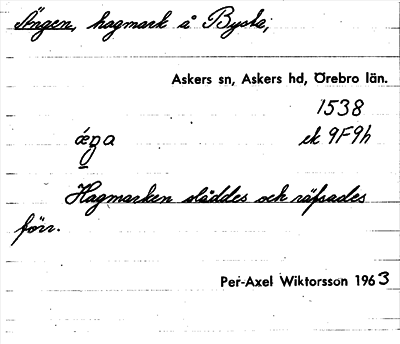 Ängen, hagmark å Bysta,
Askers sn, Askers hd, Örebro län.
1538
ek 9F9h
Hagmarken sláddes och räfsades
förr.
Per-Axel Wiktorsson 1963